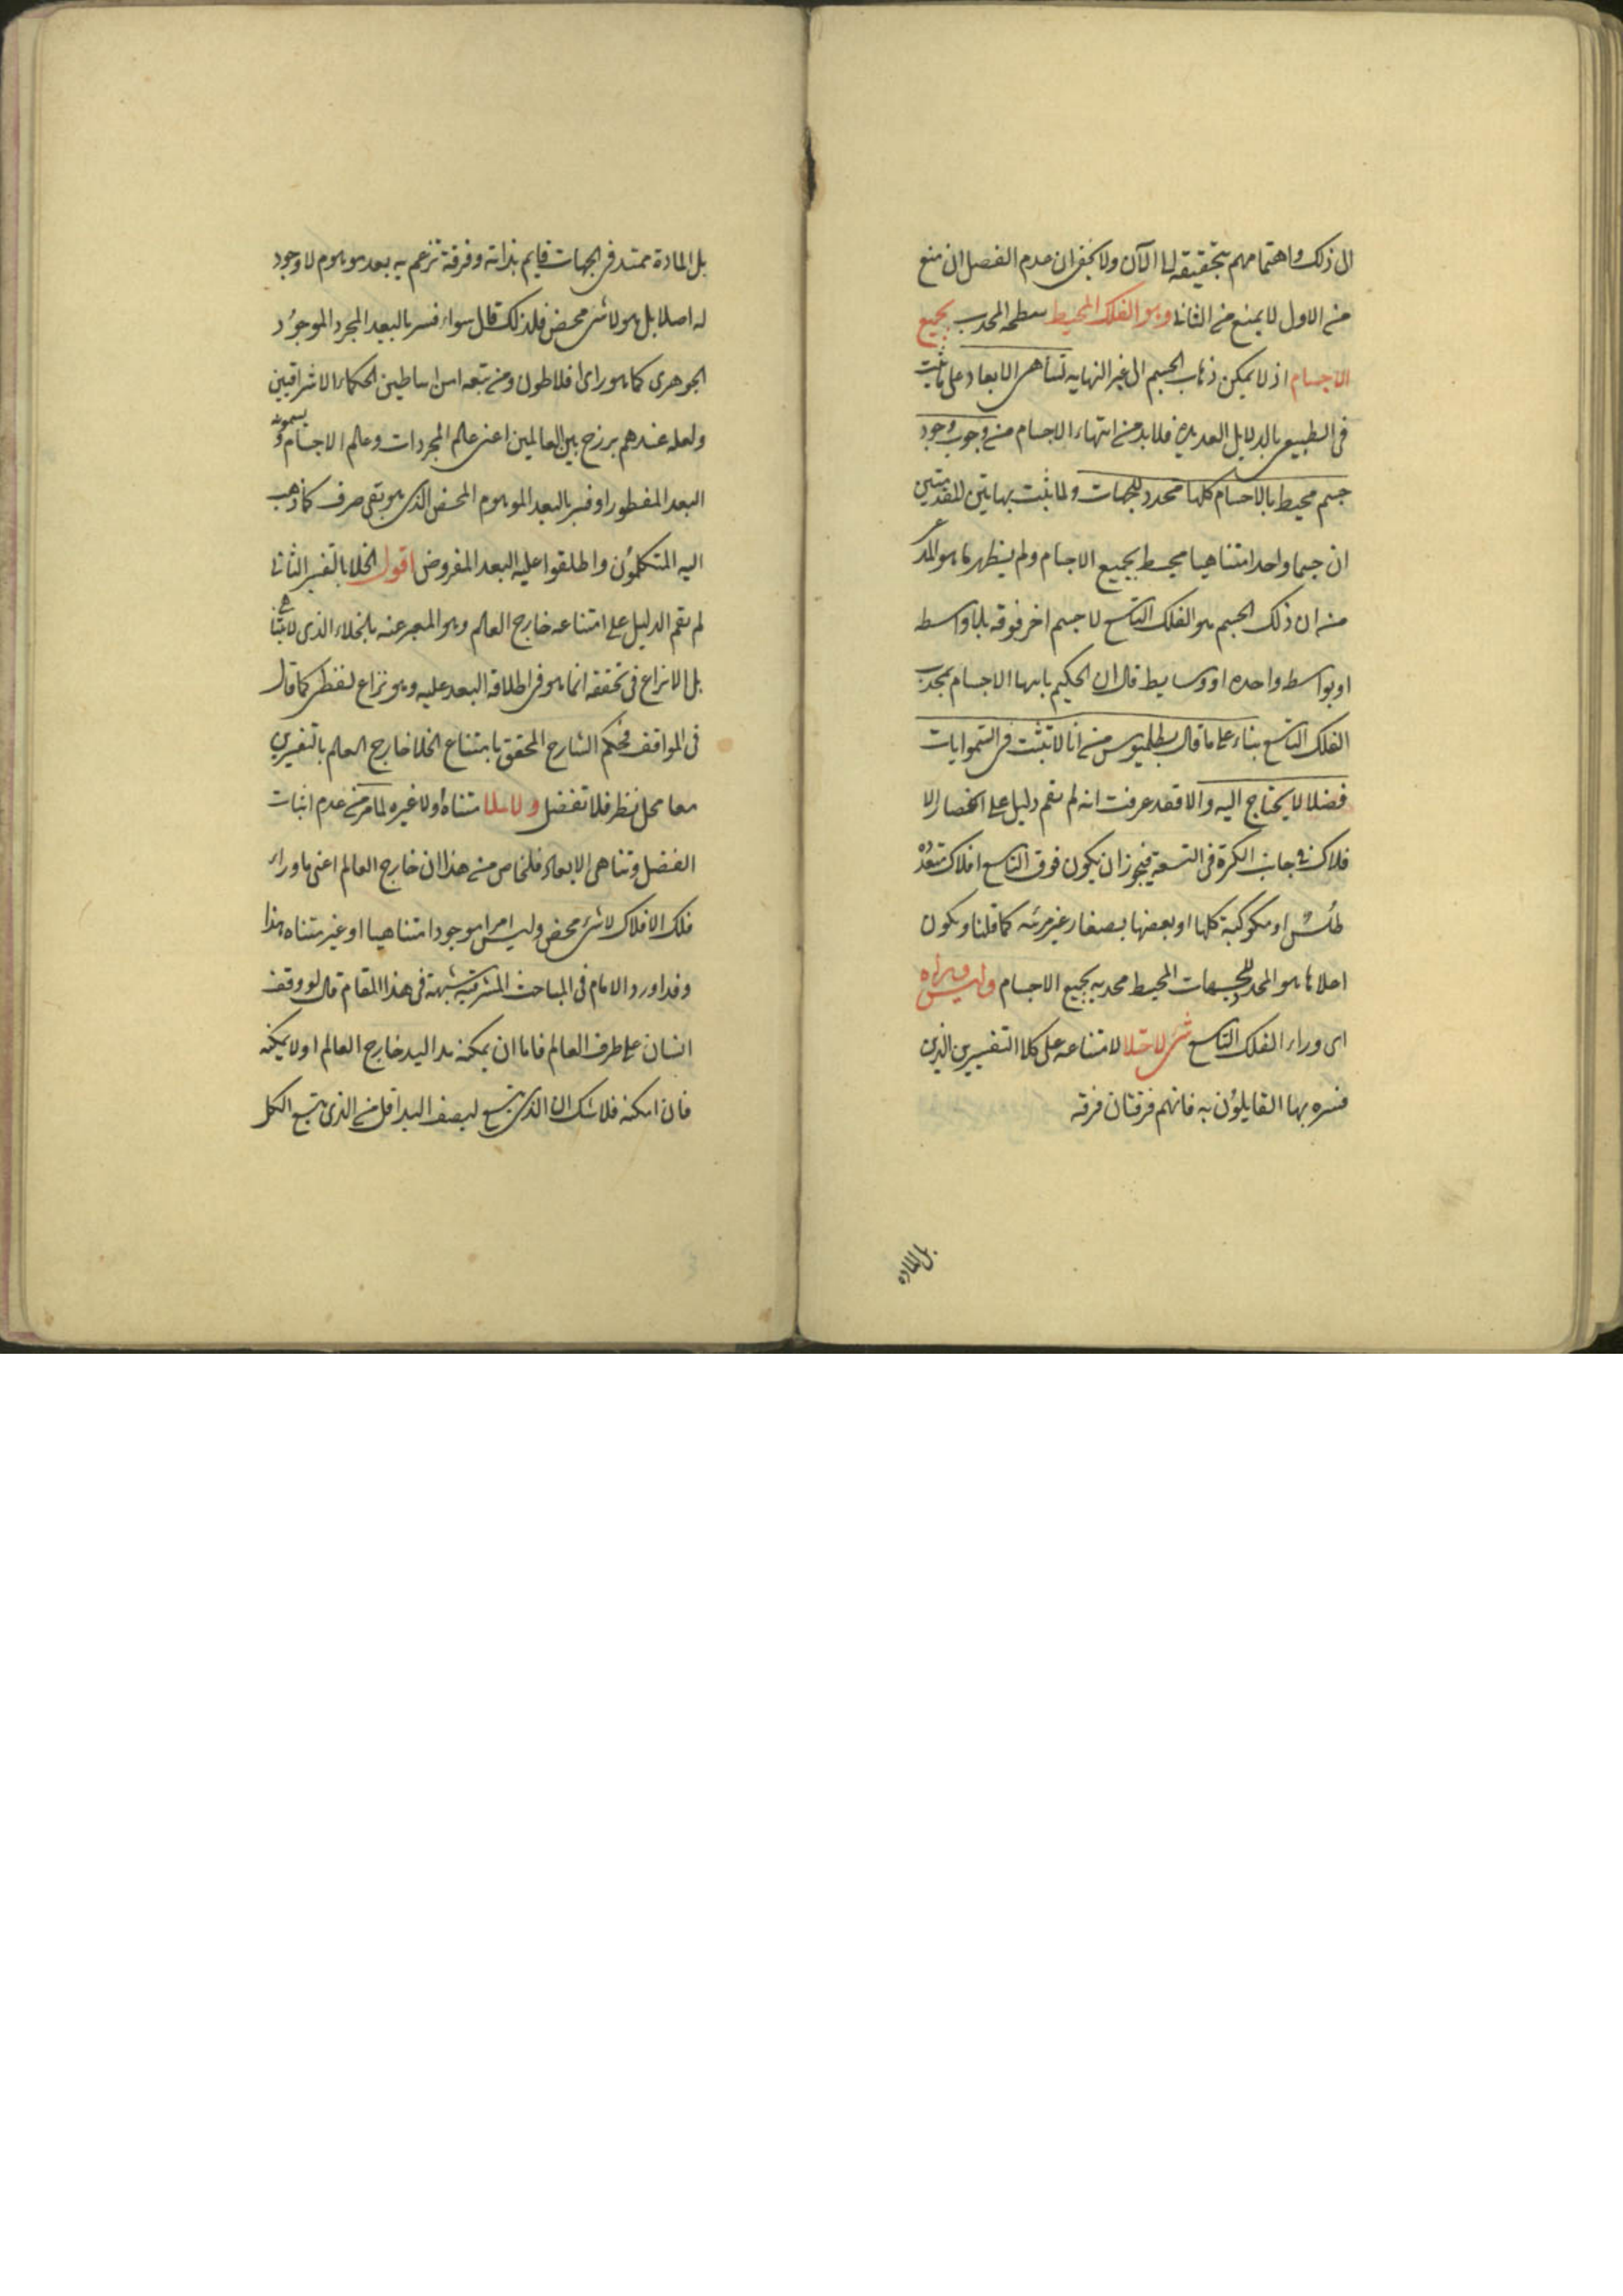 الى ذلك واهتمامهم بتحقيقه الى الآن ولا يخفى ان عدم الفصل ان منع
من الاول لا يمنع من الثانى وهو الفلك المحيط سطحه المحدب بجميع
الاجسام اذ لا يمكن ذهاب الجسم الى غير النهايه لتناهى الابعاد على ما ثبت
فى الطبيعى بالدلايل العديدة فلا بد من انتهاء الاجسام من وجوب وجود
جسم محيط بالاجسام كلها محدد للجهات ولما ثبت بهاتين المقدمتين
ان جسما واحدا متناهيا محيط بجميع الاجسام ولم يظهر ما هو المد
من ان ذلك الجسم هو الفلك التاسع لا جسم اخر فوقه بلا واسطه
او بواسطه واحده او وسايط قال ان الحكيم بانهاء الاجسام بمحدب
الفلك التاسع بناء على ما قال بطلميوس من انا لا نثبت فى السموايات
فضلا لا يحتاج اليه والا فقد عرفت انه لم يقم دليل على انحصار الا
فلاك فى جانب الكثرة فى التسعة فيجوز ان يكون فوق التاسع افلاك متعدده
طلس او مكوكبة كلها او بعضها بصغار غير مرئيه كما قلنا ويكون
اعلاها هو المحدد للجهات المحيط محدبه بجميع الاجسام وليس وراه
اى وراء الفلك التاسع شئ لا خلا لامتناعه على كلا التفسيرين الذين
فسره بهما القايلون به فانهم فرقتان فرقه
بل الماده
بل المادة ممتد فى الجهات قايم بذاته وفرقة تزعم به بعد موهوم لا وجود
له اصلا بل هو لا شئ محض فلذلك قال سواء فسر بالبعد المجرد الموجود
الجوهرى كما هو راى افلاطون ومن تبعه من اساطين الحكماء الاشراقيين
ولعله عندهم برزخ بين العالمين اعنى عالم المجردات وعالم الاجسام ويسمونه
البعد المفطور او فسر بالبعد الموهوم المحض الذى هو نفى صرف كما ذهب
اليه المتكلمون واطلقوا عليه البعد المفروض اقول الخلا بالتفسير الثانى
لم يقم الدليل على امتناعه خارج العالم وهو المعبر عنه بالخلاء الذى لا يتناهى
بل لا نزاع فى تحققه انما هو فى اطلاقه البعد عليه وهو نزاع لفظى كما قال
فى المواقف فحكم الشارح المحقق بامتناع الخلا خارج العالم بالتفسيرين
معا محل نظر فلا تغفل ولا ملا متناه ولا غيره لما مر من عدم اثبات
الفضل وتناهى الابعاد فلخاص من هذا ان خارج العالم اعنى ما وراء
فلك الافلاك لا شئ محض وليس امرا موجودا متناهيا او غير متناه هذا
وقد اورد الامام فى المباحث المشرقيه شبهة فى هذا المقام قال لو وقف
انسان على طرف العالم فاما ان يمكنه مد اليد خارج العالم او لا يمكنه
فان امكنه فلا شك ان الذى يتسع لنصف اليد اقل من الذى يتسع الكل